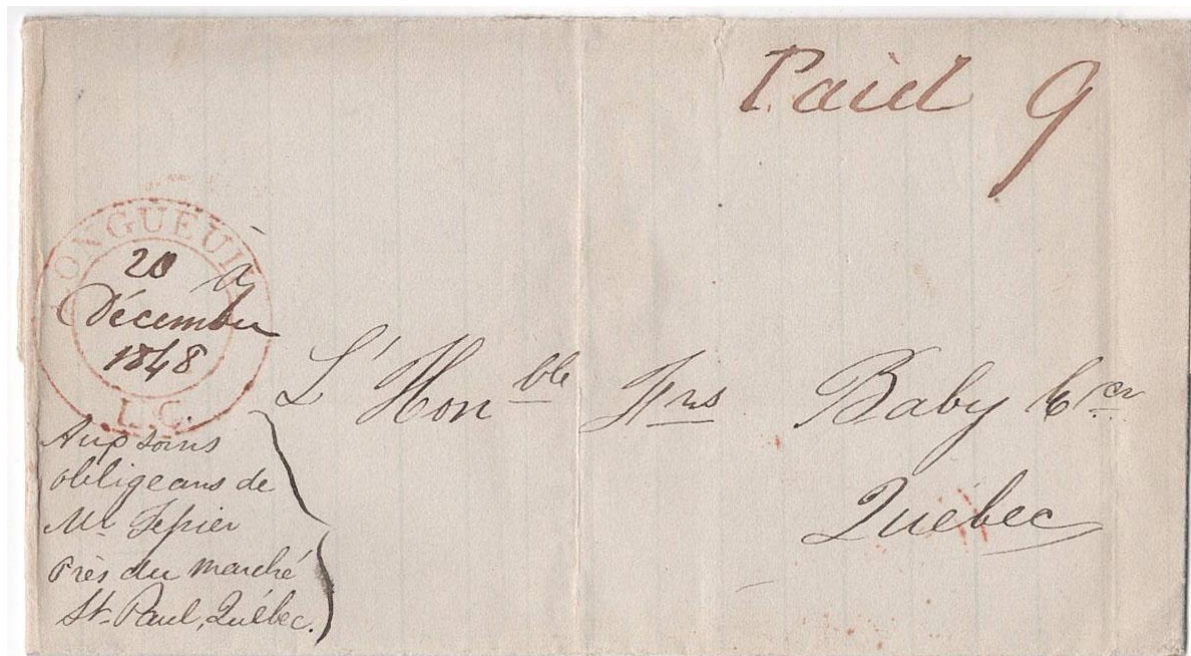 Paid 9
LONGUEUIL
20
Décembre
1848
L.C.
L'Hon ble Frs Baby
Québec
Aux soins
obligeans de
Mr
Près du marché
St. Paul, Québec.